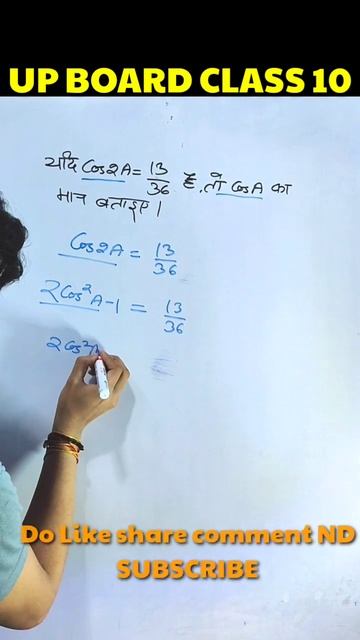 UP BOARD CLASS 10
यदि Cos2A = 13/36 है, तो CosA का
मान बताइए।
Cos2A = 13/36
2Cos²A-1 = 13/36
2Cos²A
Do Like share comment ND
SUBSCRIBE